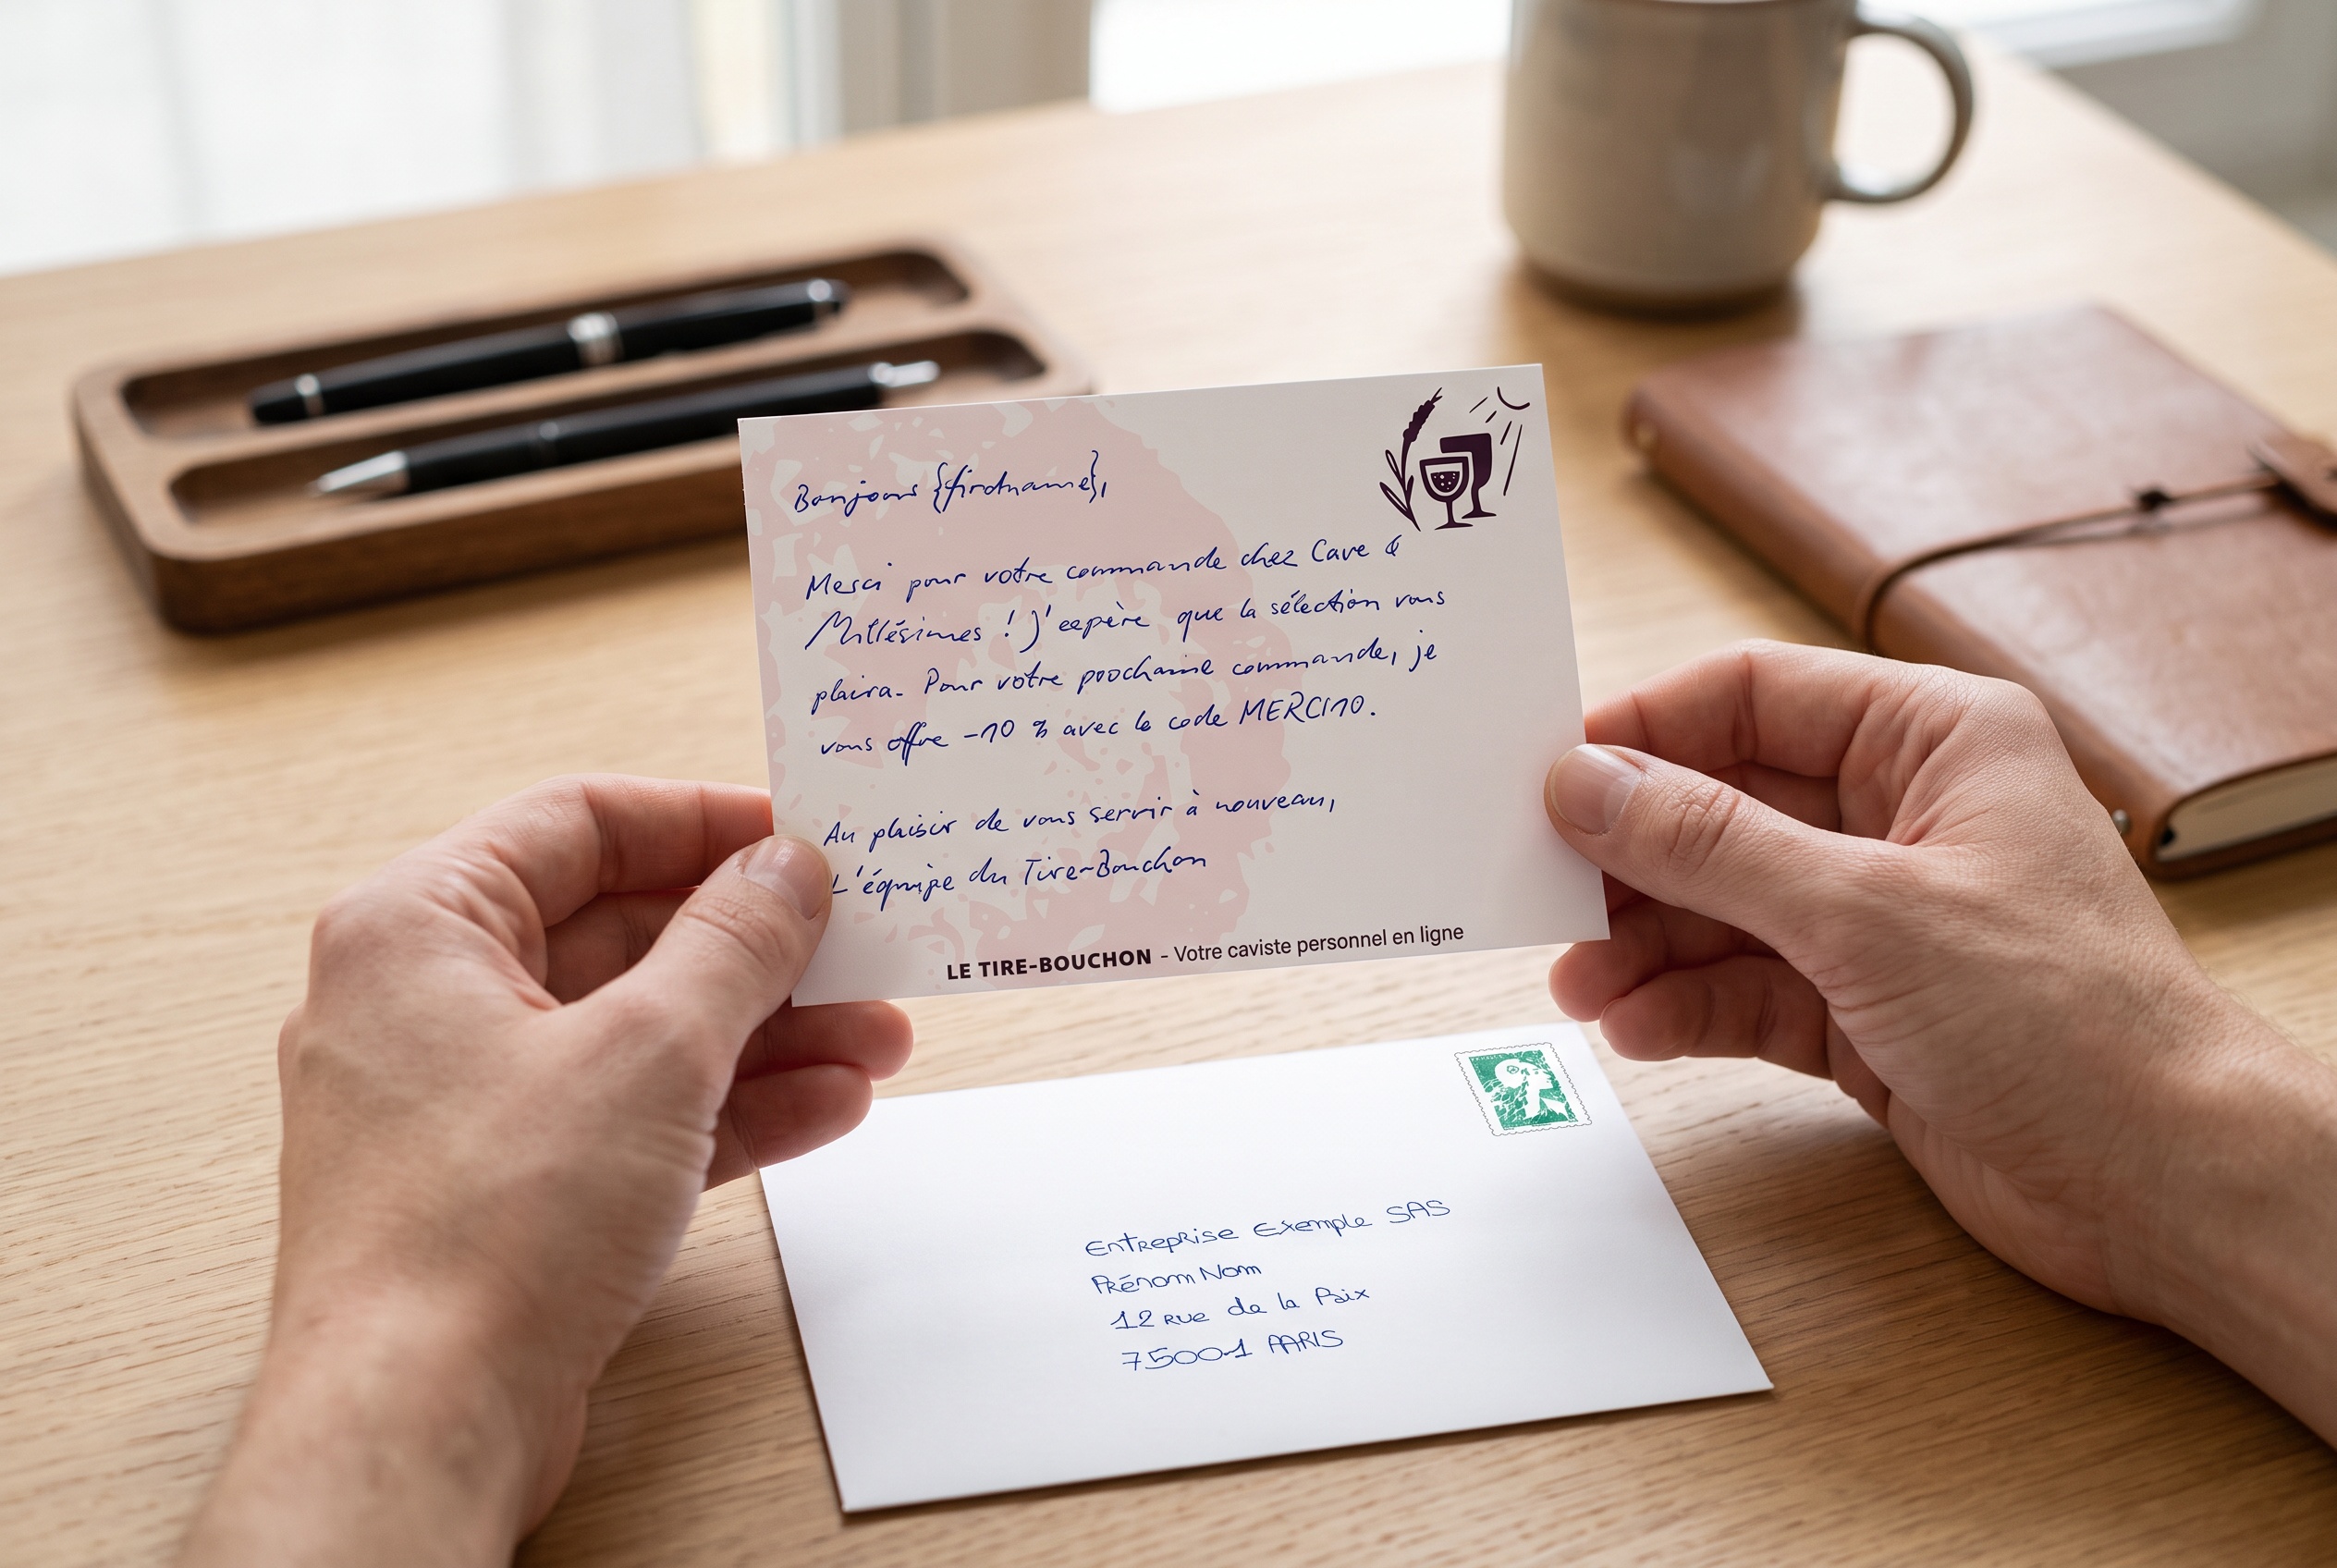 Bonjour {firstname},
Merci pour votre commande chez Cave &
Millésimes ! J'espère que la sélection vous
plaira. Pour votre prochaine commande, je
vous offre -10 % avec le code MERCI10.
Au plaisir de vous servir à nouveau,
L'équipe du Tire-Bouchon
LE TIRE-BOUCHON - Votre caviste personnel en ligne
Entreprise Exemple SAS
Prénom Nom
12 rue de la Paix
75001 PARIS